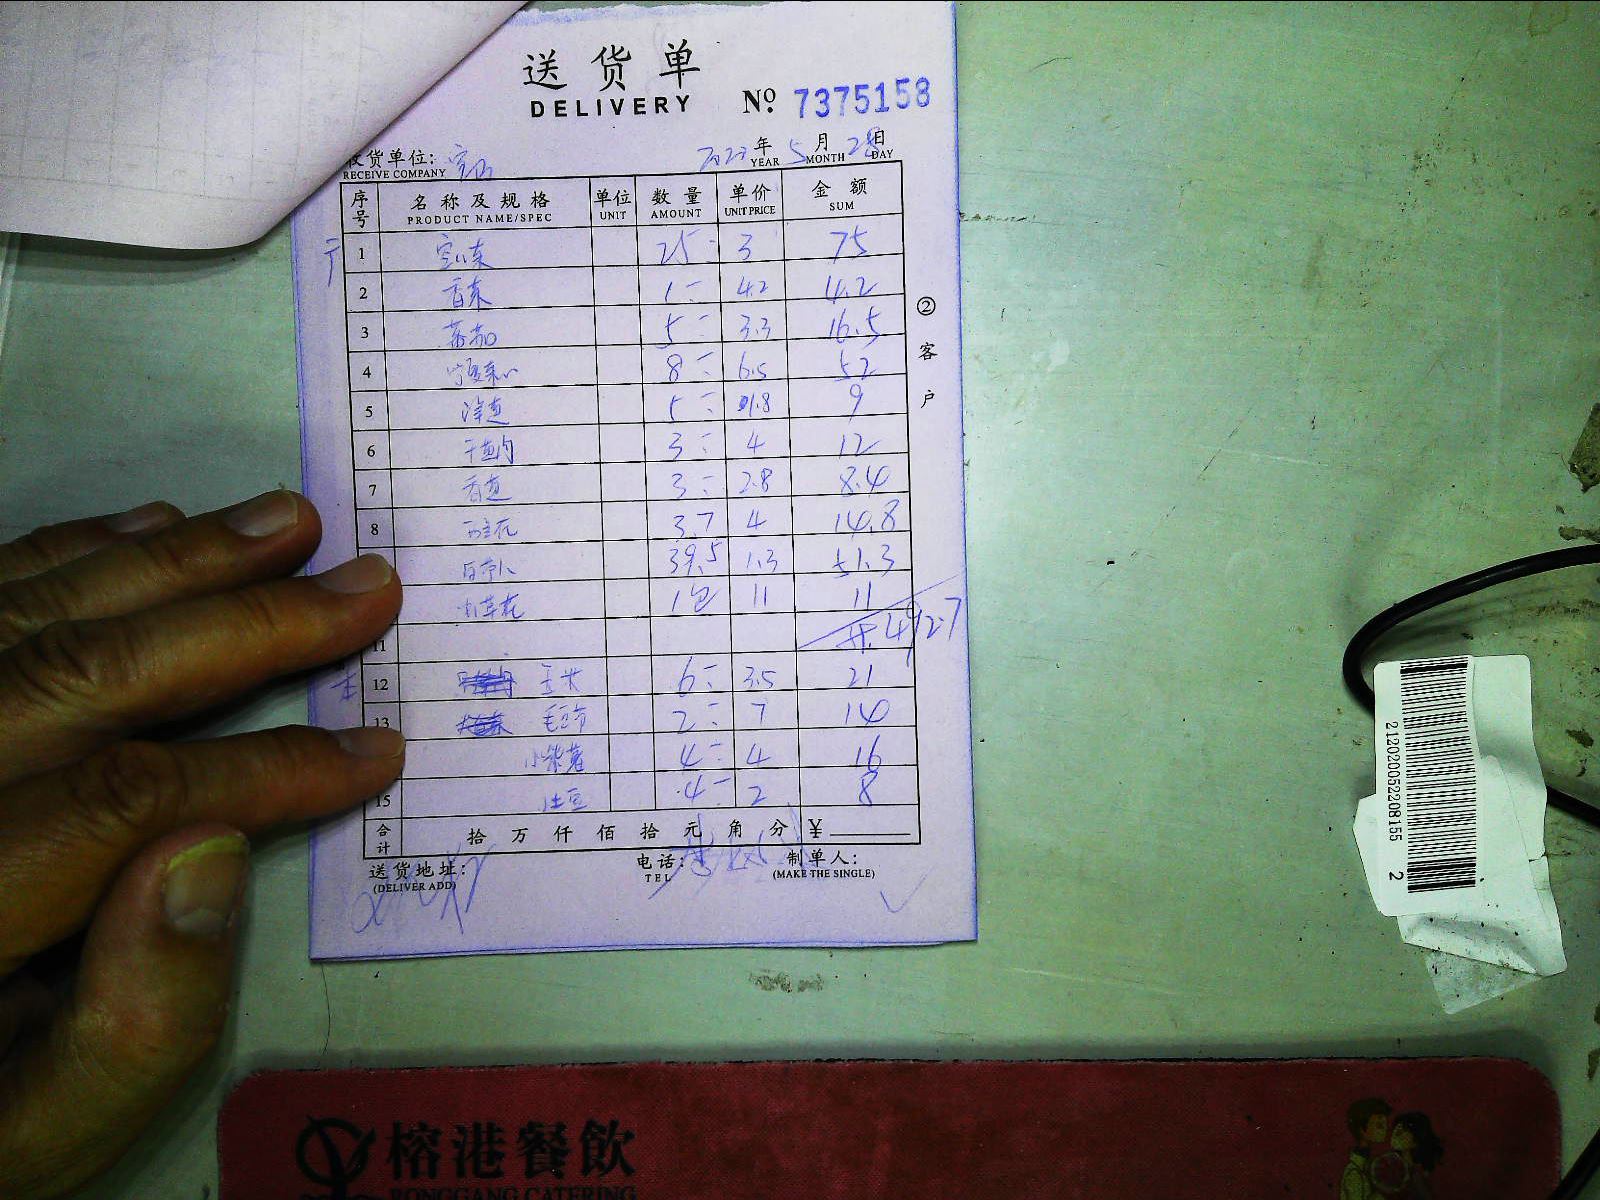 送货单
DELIVERY
No. 7375158
收货单位:
RECEIVE COMPANY
年 5 月 28 日
YEAR MONTH DAY
序号 名称及规格 单位 数量 单价 金额
PRODUCT NAME/SPEC UNIT AMOUNT UNIT PRICE SUM
1 25 3 75
2 香菜 1 4.2 4.2
3 蕃茄 5 3.3 16.5
4 宁夏菜心 8 6.5 52
5 洋芭 5 1.8 9
6 3 4 12
7 3 2.8 8.4
8 3.7 4 14.8
39.5 1.3 51.3
虫草花 1包 11 11
11 492.7
12 玉米 6 3.5 21
13 毛豆节 2 7 14
小紫薯 4 4 16
15 土豆 4 2 8
合计 拾 万 仟 佰 拾 元 角 分 ¥
送货地址: 电话: 制单人:
(DELIVER ADD) TEL (MAKE THE SINGLE)
②客户
2120200522208155 2
榕港餐飲
RONGGANG CATERING